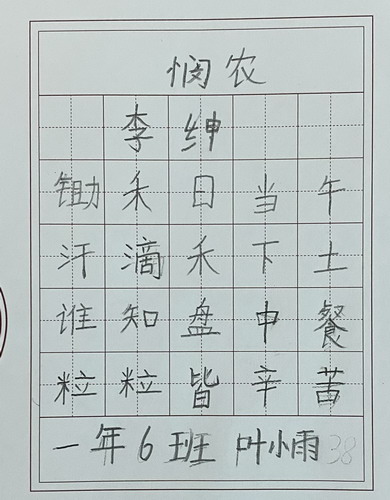 悯农
李绅
锄禾日当午
汗滴禾下土
谁知盘中餐
粒粒皆辛苦
一年6班 叶小雨 38